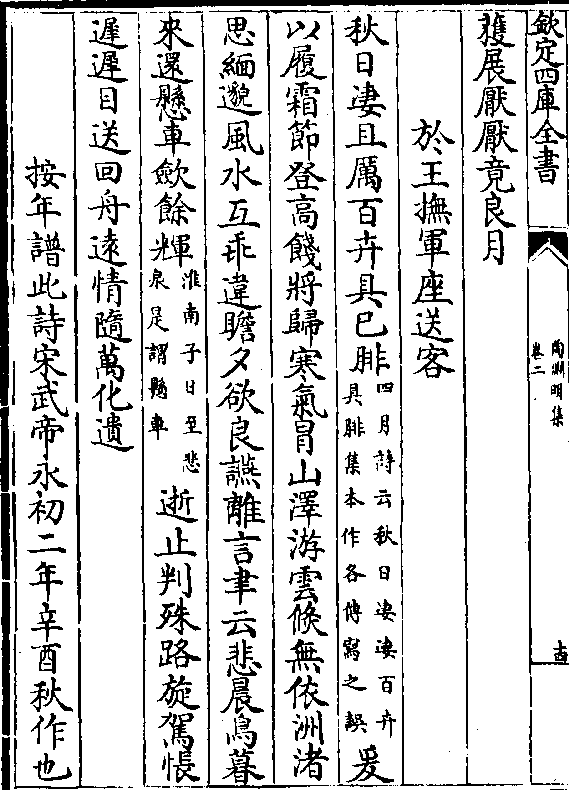 欽定四庫全書
陶淵明集
卷二
十四
穫展厭厭竟良月
於王撫軍座送客
秋日凄且厲百卉具已腓四月詩云秋日凄凄百卉具腓集本作各傳寫之誤爰
以履霜節登高餞將歸寒氣冒山澤游雲倐無依洲渚
思緬邈風水互乖違瞻夕欲良讌離言聿云悲晨鳥暮
來還懸車歛餘輝淮南子日至悲泉是謂懸車逝止判殊路旋駕悵
遲遲目送回舟遠情隨萬化遺
按年譜此詩宋武帝永初二年辛酉秋作也